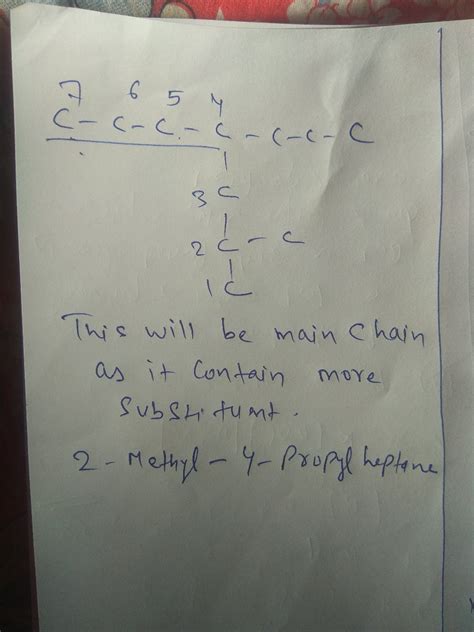 7 6 5 4
C - C - C - C - C - C - C
|
3 C
|
2 C - C
|
1 C
This will be main chain
as it contain more
substitumt.
2 - Methyl - 4 - Propyl heptane